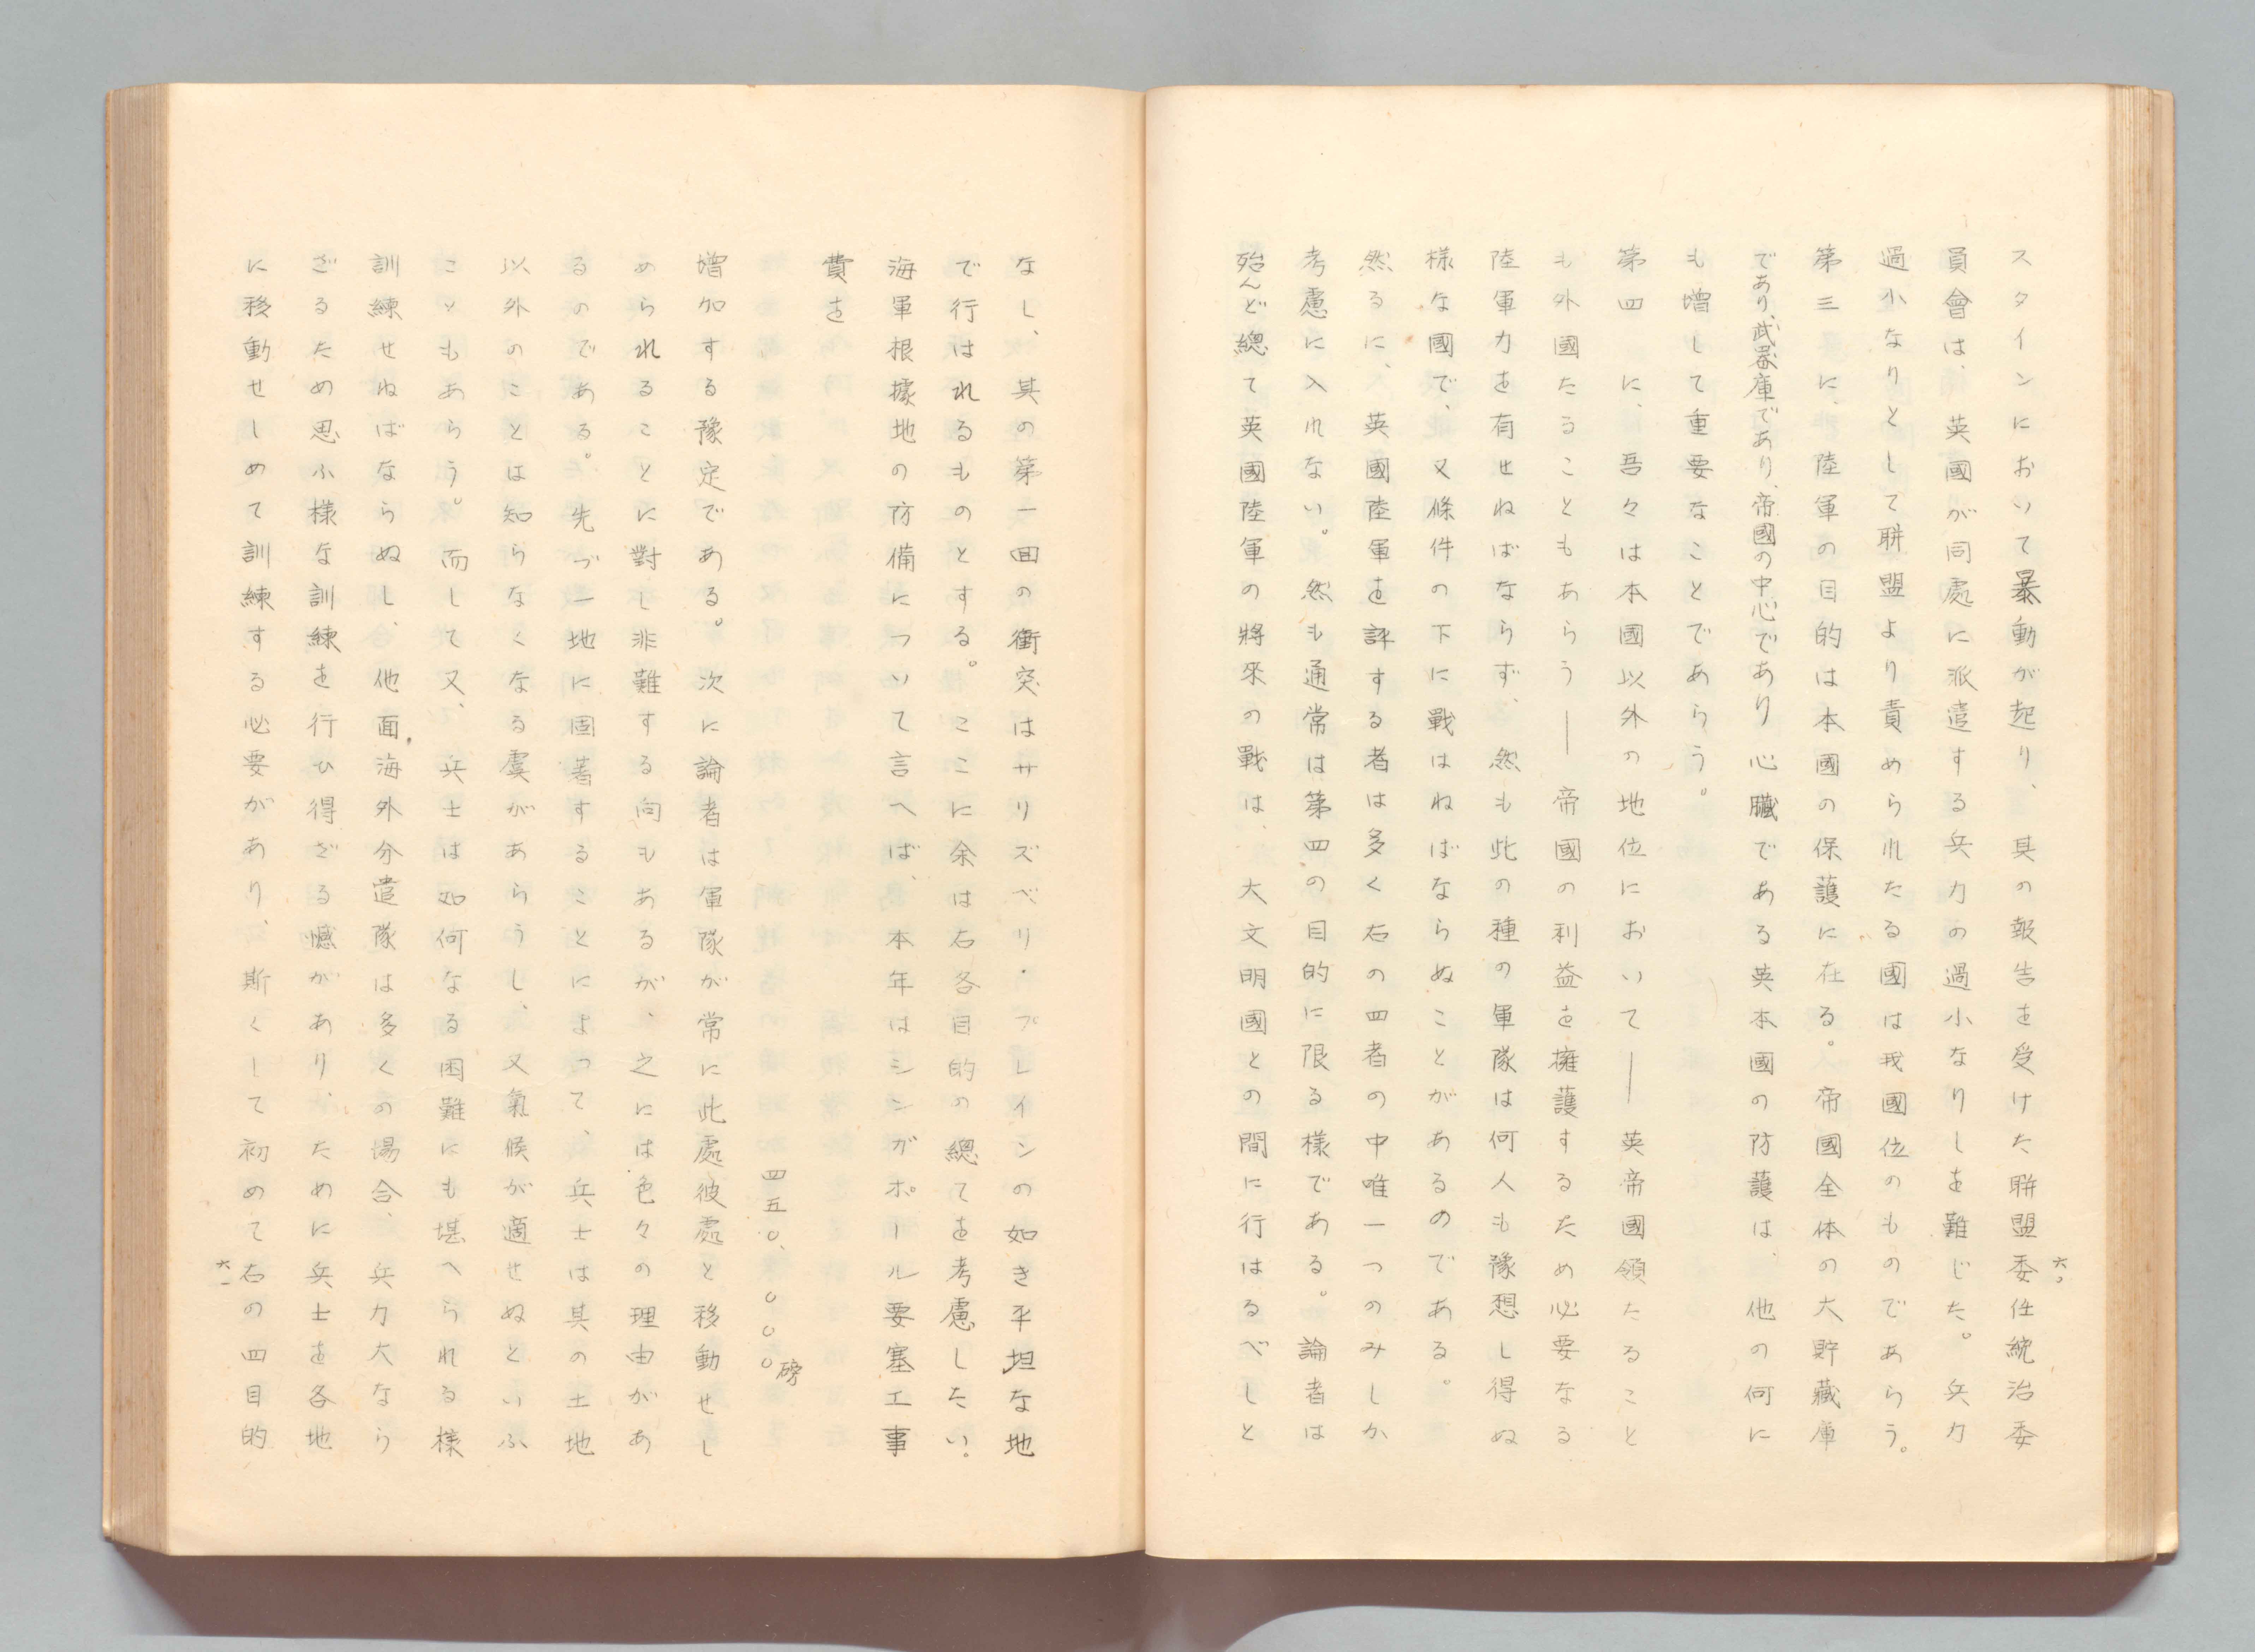 スタインにおいて暴動が起り、其の報告を受けた聯盟委任統治委
員會は、英國が同處に派遣する兵力の過小なりしを難じた。兵力
過小なりとして聯盟より責められたる國は我國位のものであらう。
第三に、陸軍の目的は本國の保護に在る。帝國全体の大貯藏庫
であり、武器庫であり、帝國の中心であり心臟である英本國の防護は、他の何に
も増して重要なことであらう。
第四に、吾々は本國以外の地位において――英帝國領たること
も外國たることもあらう――帝國の利益を擁護するため必要なる
陸軍力を有せねばならず、然も此の種の軍隊は何人も豫想し得ぬ
様な國で、又條件の下に戰はねばならぬことがあるのである。
然るに、英國陸軍を評する者は多く右の四者の中唯一つのみしか
考慮に入れない。然も通常は第四の目的に限る様である。論者は
殆んど總て英國陸軍の將來の戰は、大文明國との間に行はるべしと
六〇
なし、其の第一回の衝突はサリズベリ・プレインの如き平坦な地
で行はれるものとする。ここに余は右各目的の總てを考慮したい。
海軍根據地の防備について言へば、本年はシンガポール要塞工事
費を
四五〇、〇〇〇磅
増加する豫定である。次に論者は軍隊が常に此處彼處と移動せし
められることに對し非難する向もあるが、之には色々の理由があ
るのである。先づ一地に固著することによつて、兵士は其の土地
以外のことは知らなくなる虞があらうし、又氣候が適せぬといふ
こともあらう。而して又、兵士は如何なる困難にも堪へられる様
訓練せねばならぬし、他面、海外分遣隊は多くの場合、兵力大なら
ざるため思ふ様な訓練を行ひ得ざる憾があり、ために兵士を各地
に移動せしめて訓練する必要があり、斯くして初めて右の四目的
六一